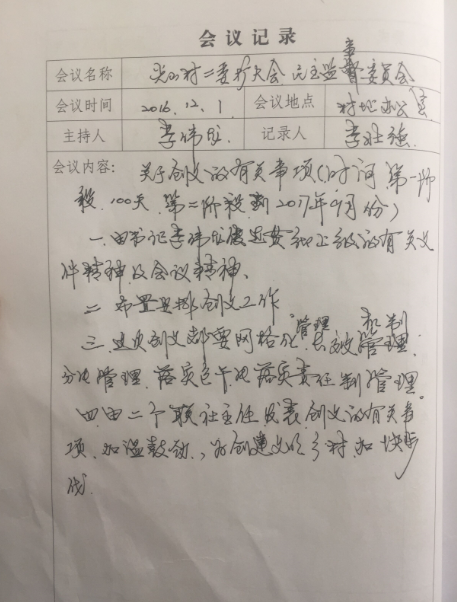 会议记录
会议名称 村二委扩大会 民主监督委员会
会议时间 2016.12.1 会议地点 村地办公室
主持人 李 记录人 李
会议内容: 关于创文的有关事项(时间第一阶
段 100天 第二阶段到2017年9月份)
一.由书记李 上级的有关文
件精神及会议精神、
二 布置安排创文工作
三.这次创文都要网格化管理 长效管理机制
分片管理 落实 落实责任制管理。
四.由二个联社主任发表创文的有关事
项.加温鼓动,为创建文明乡村加快步
伐.